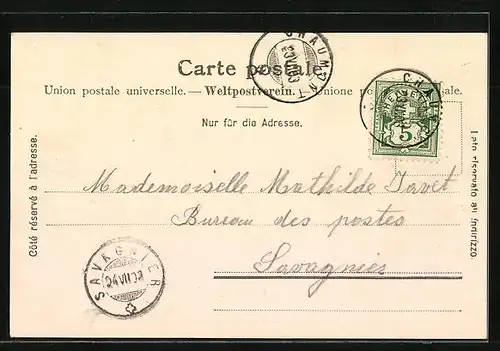 Carte postale.
Union postale universelle. — Weltpostverein. — Unione postale
Nur für die Adresse.
Côté réservé à l'adresse.
Lato riservato all'indirizzo.
CHAUMONT
CHAUMONT
HELVETIA
5
Mademoiselle Mathilde Javet
Bureau des postes
Savagnier
SAVAGNIER
24 VII 03